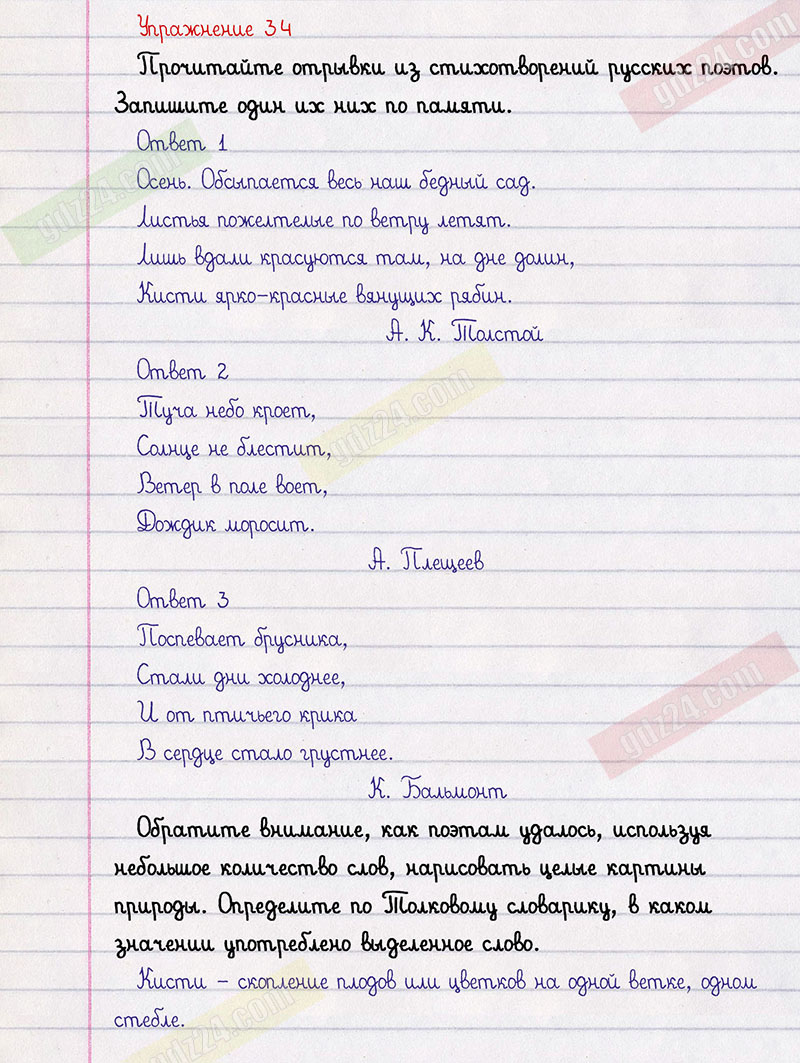 Упражнение 34
Прочитайте отрывки из стихотворений русских поэтов.
Запишите один их них по памяти.
Ответ 1
Осень. Обсыпается весь наш бедный сад.
Листья пожелтелые по ветру летят.
Лишь вдали красуются там, на дне долин,
Кисти ярко-красные вянущих рябин.
А. К. Толстой
Ответ 2
Туча небо кроет,
Солнце не блестит,
Ветер в поле воет,
Дождик моросит.
А. Плещеев
Ответ 3
Поспевает брусника,
Стали дни холоднее,
И от птичьего крика
В сердце стало грустнее.
К. Бальмонт
Обратите внимание, как поэтам удалось, используя
небольшое количество слов, нарисовать целые картины
природы. Определите по Толковому словарику, в каком
значении употреблено выделенное слово.
Кисти – скопление плодов или цветков на одной ветке, одном
стебле.
gdz24.com
gdz24.com
gdz24.com
gdz24.com
gdz24.com